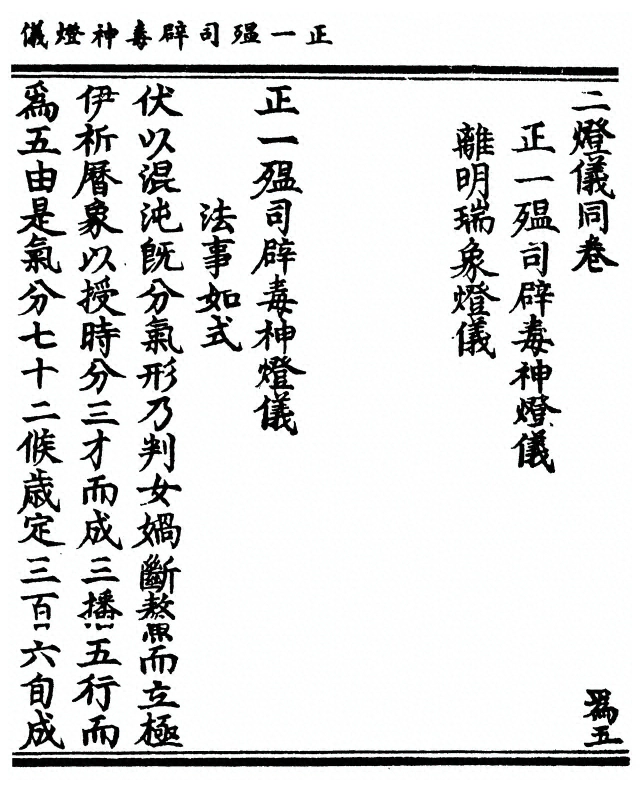 正一殟司辟毒神燈儀
二燈儀同卷
為五
正一殟司辟毒神燈儀
離明瑞象燈儀
正一殟司辟毒神燈儀
法事如式
伏以混沌旣分氣形乃判女媧斷鼇而立極
伊祈曆象以授時分三才而成三播五行而
爲五由是氣分七十二候歲定三百六旬成